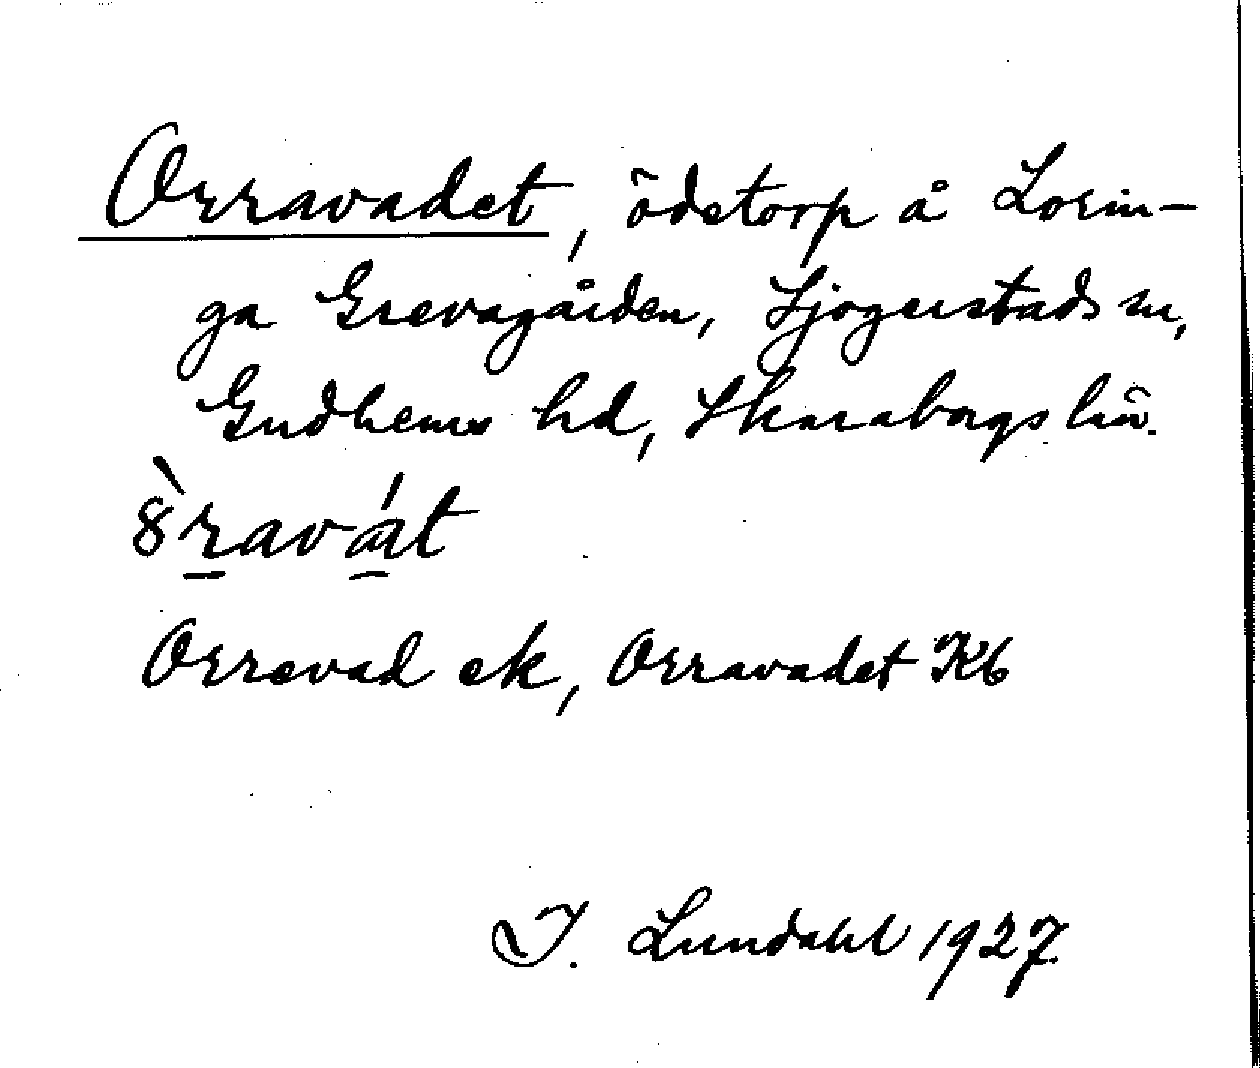 Orravadet, ödetorp å Lorin-
ga Grevagården, Sjogerstads sn,
Gudhems hd, Skaraborgs län.
8̀ravát
Orrevad ek, Orravadet Kb
I. Lundahl 1927.